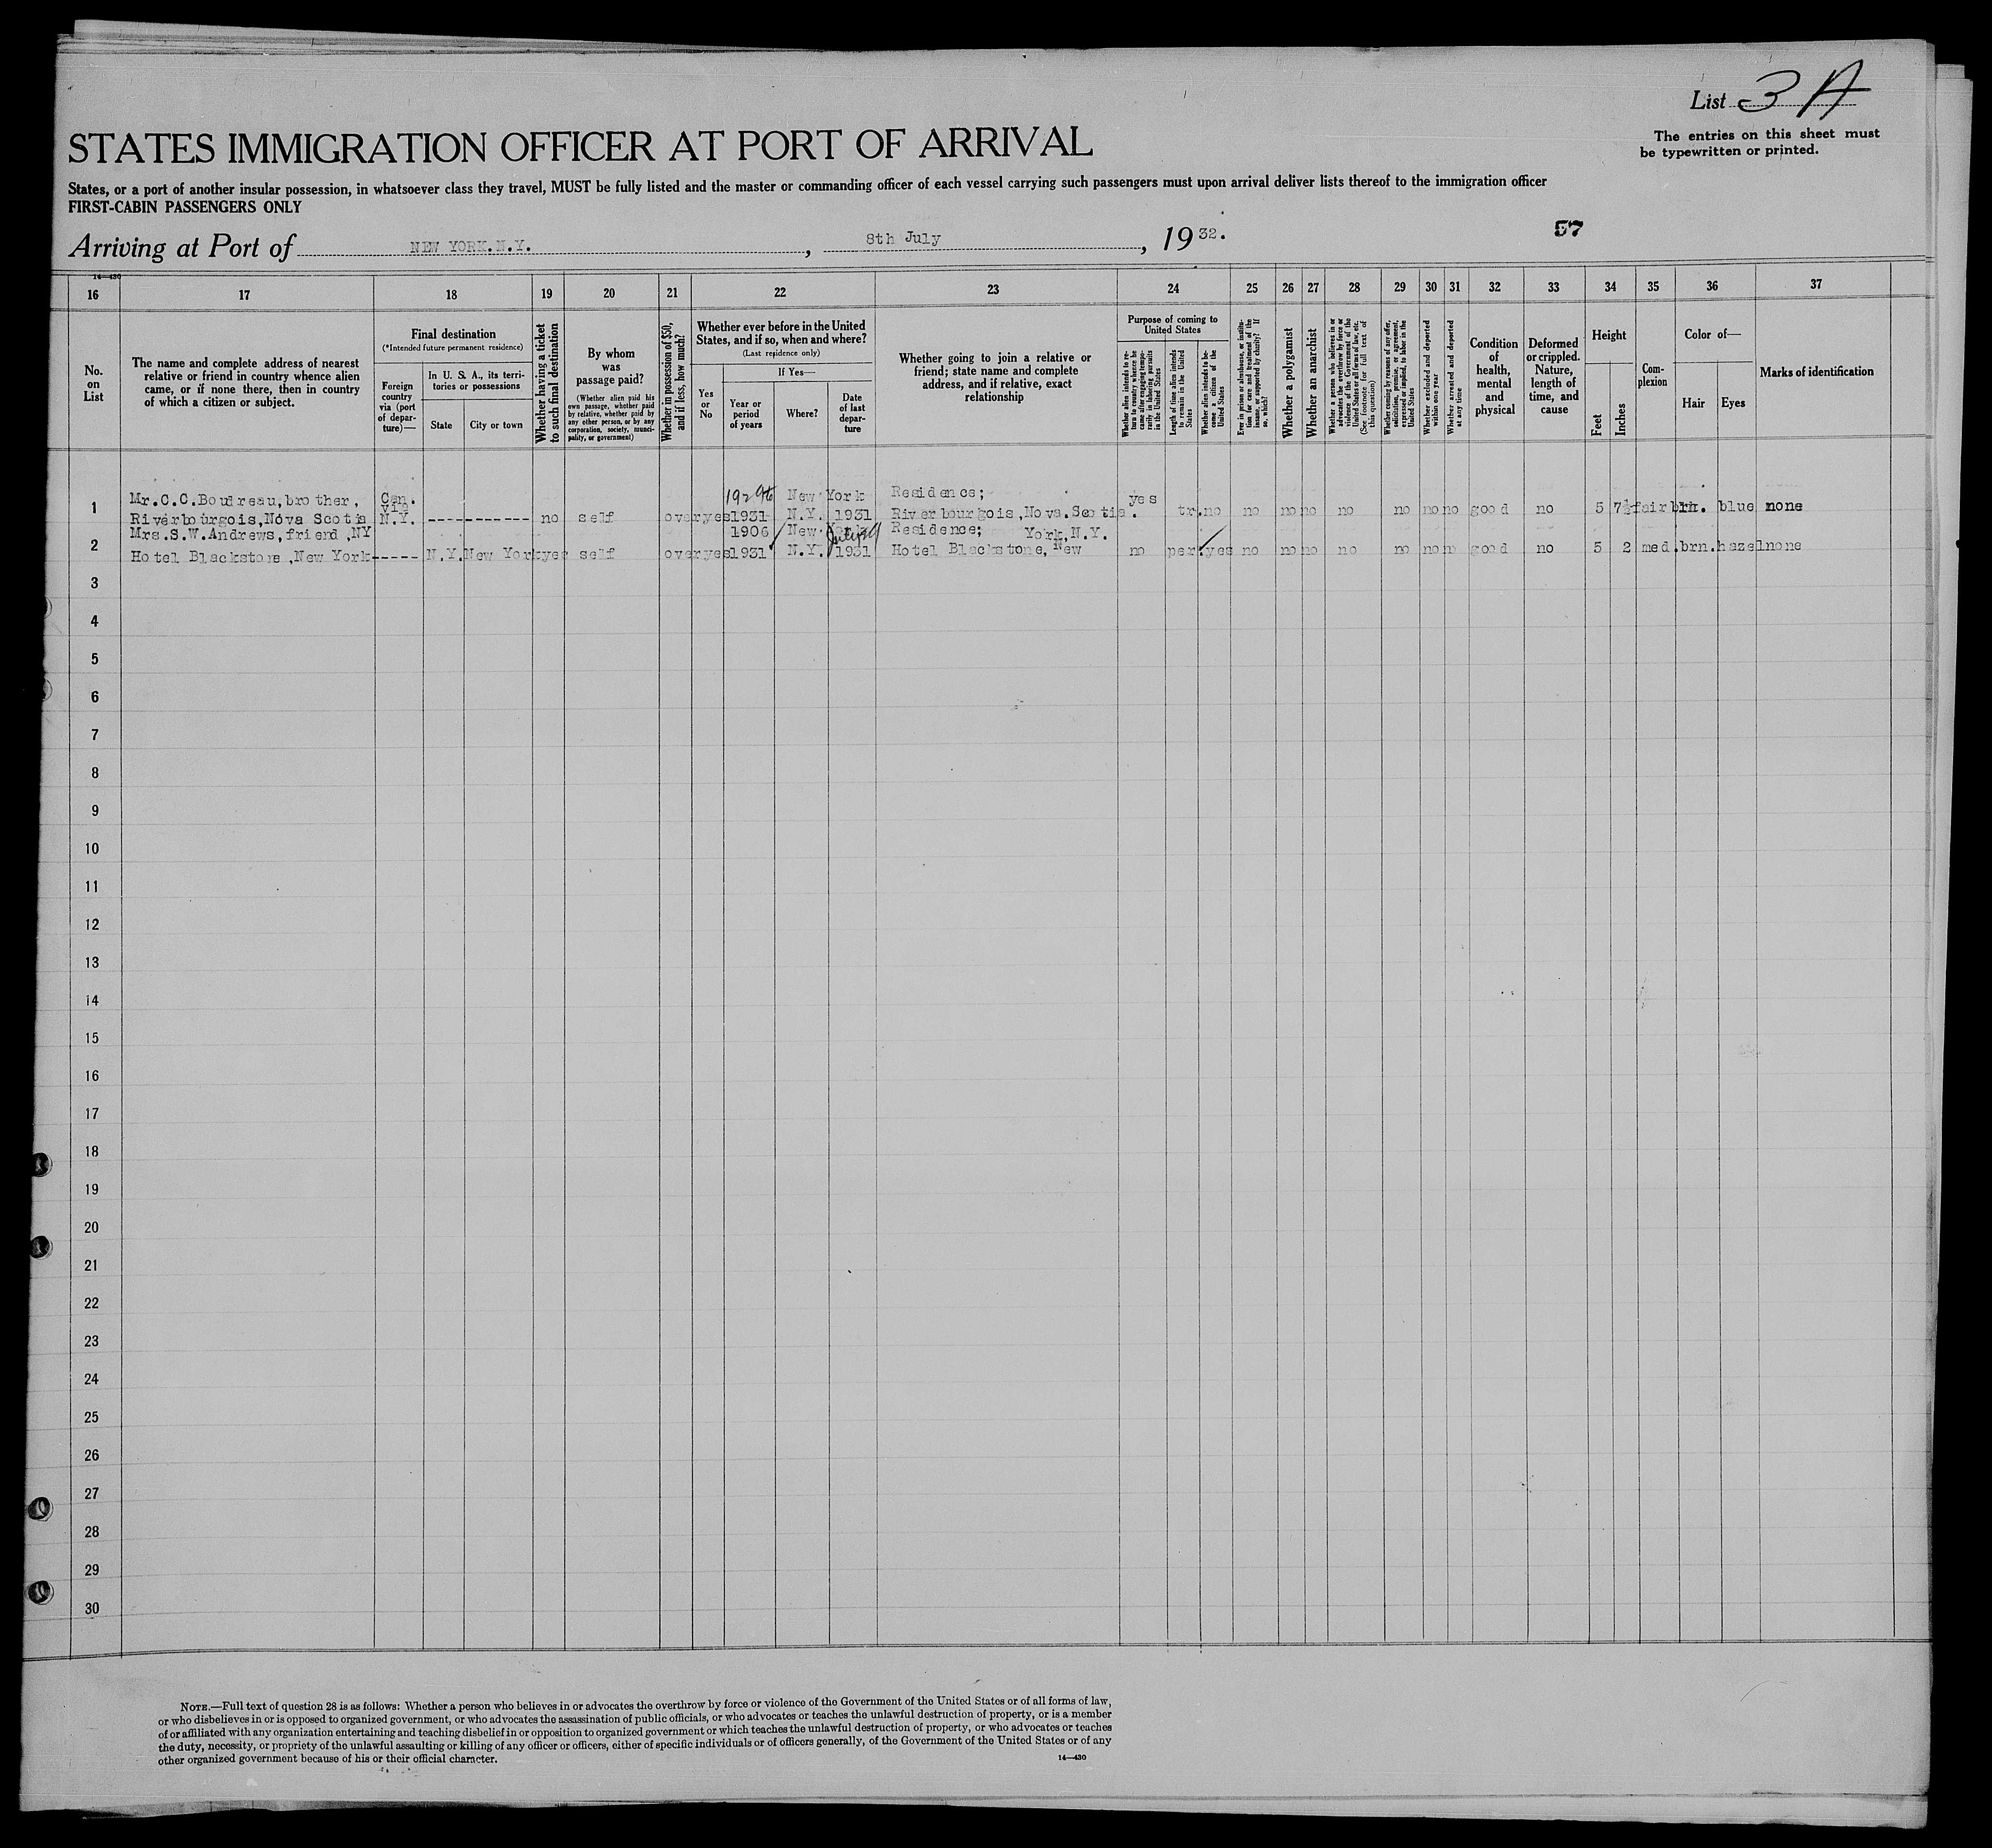 List 3 A
The entries on this sheet must
be typewritten or printed.
STATES IMMIGRATION OFFICER AT PORT OF ARRIVAL
States, or a port of another insular possession, in whatsoever class they travel, MUST be fully listed and the master or commanding officer of each vessel carrying such passengers must upon arrival deliver lists thereof to the immigration officer
FIRST-CABIN PASSENGERS ONLY
Arriving at Port of NEW YORK.N.Y. , 8th July , 1932.
57
14—430
16 17 18 19 20 21 22 23 24 25 26 27 28 29 30 31 32 33 34 35 36 37
No.
on
List
The name and complete address of nearest
relative or friend in country whence alien
came, or if none there, then in country
of which a citizen or subject.
Final destination
(*Intended future permanent residence)
Foreign
country
via (port
of depar-
ture)—
In U. S. A., its terri-
tories or possessions
State
City or town
Whether having a ticket
to such final destination
By whom
was
passage paid?
(Whether alien paid his
own passage, whether paid
by relative, whether paid by
any other person, or by any
corporation, society, munici-
pality, or government)
Whether in possession of $50,
and if less, how much?
Whether ever before in the United
States, and if so, when and where?
(Last residence only)
Yes
or
No
If Yes—
Year or
period
of years
Where?
Date
of last
depar-
ture
Whether going to join a relative or
friend; state name and complete
address, and if relative, exact
relationship
Purpose of coming to
United States
Whether alien intends to re-
turn to country whence he
came after engaging tempo-
rarily in laboring pursuits
in the United States
Length of time alien intends
to remain in the United
States
Whether alien intends to be-
come a citizen of the
United States
Ever in prison or almshouse, or institu-
tion for care and treatment of the
insane, or supported by charity? If
so, which?
Whether a polygamist
Whether an anarchist
Whether a person who believes in or
advocates the overthrow by force or
violence of the Government of the
United States or all forms of law, etc.
(See footnote for full text of
this question)
Whether coming by reasons of any offer,
solicitation, promise, or agreement,
expressed or implied, to labor in the
United States
Whether excluded and deported
within one year
Whether arrested and deported
at any time
Condition
of
health,
mental
and
physical
Deformed
or crippled.
Nature,
length of
time, and
cause
Height
Feet
Inches
Com-
plexion
Color of—
Hair
Eyes
Marks of identification
1 Mr.C.C.Boudreau,brother, Can. New York Residence; yes
via
Riverbourgois,Nova Scotia N.Y. ----------- no self over yes 1931 N.Y. 1931 Riverbourgois,Nova.Scotia. tr. no no no no no no no no good no 5 7½ fair blue none
2 Mrs.S.W.Andrews,friend,NY 1906 New Residence; York,N.Y.
Hotel Blackstone,New York ----- N.Y. New York yes self over yes 1931 N.Y. 1931 Hotel Blackstone, New no per. yes no no no no no no no good no 5 2 med. brn. hazel none
3
4
5
6
7
8
9
10
11
12
13
14
15
16
17
18
19
20
21
22
23
24
25
26
27
28
29
30
NOTE.—Full text of question 28 is as follows: Whether a person who believes in or advocates the overthrow by force or violence of the Government of the United States or of all forms of law,
or who disbelieves in or is opposed to organized government, or who advocates the assassination of public officials, or who advocates or teaches the unlawful destruction of property, or is a member
of or affiliated with any organization entertaining and teaching disbelief in or opposition to organized government or which teaches the unlawful destruction of property, or who advocates or teaches
the duty, necessity, or propriety of the unlawful assaulting or killing of any officer or officers, either of specific individuals or of officers generally, of the Government of the United States or of any
other organized government because of his or their official character.
14—430